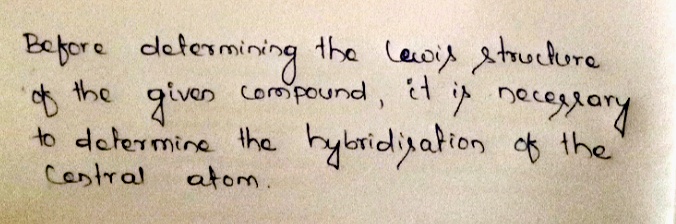 Before determining the Lewis structure
of the given compound, it is necessary
to determine the hybridisation of the
Central atom.